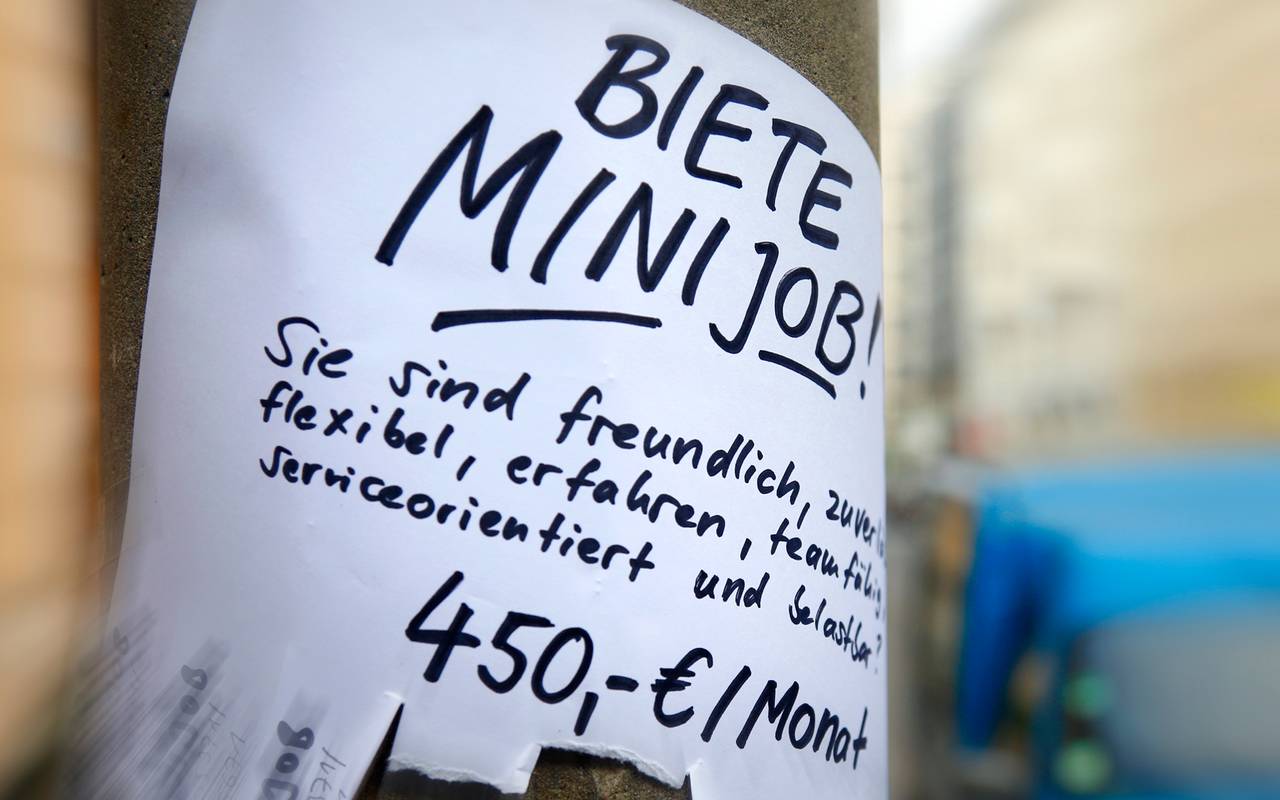 BIETE
MINIJOB!
Sie sind freundlich,
flexibel, erfahren, teamfähig,
serviceorientiert und belastbar?
450,-€/Monat
JOB
JOB